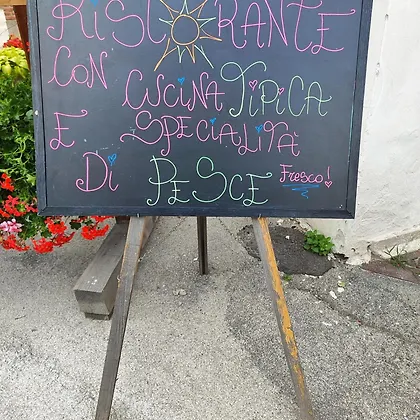 RISTORANTE
CON CUCINA TIPICA
E SPECIALITÀ
DI PESCE Fresco!